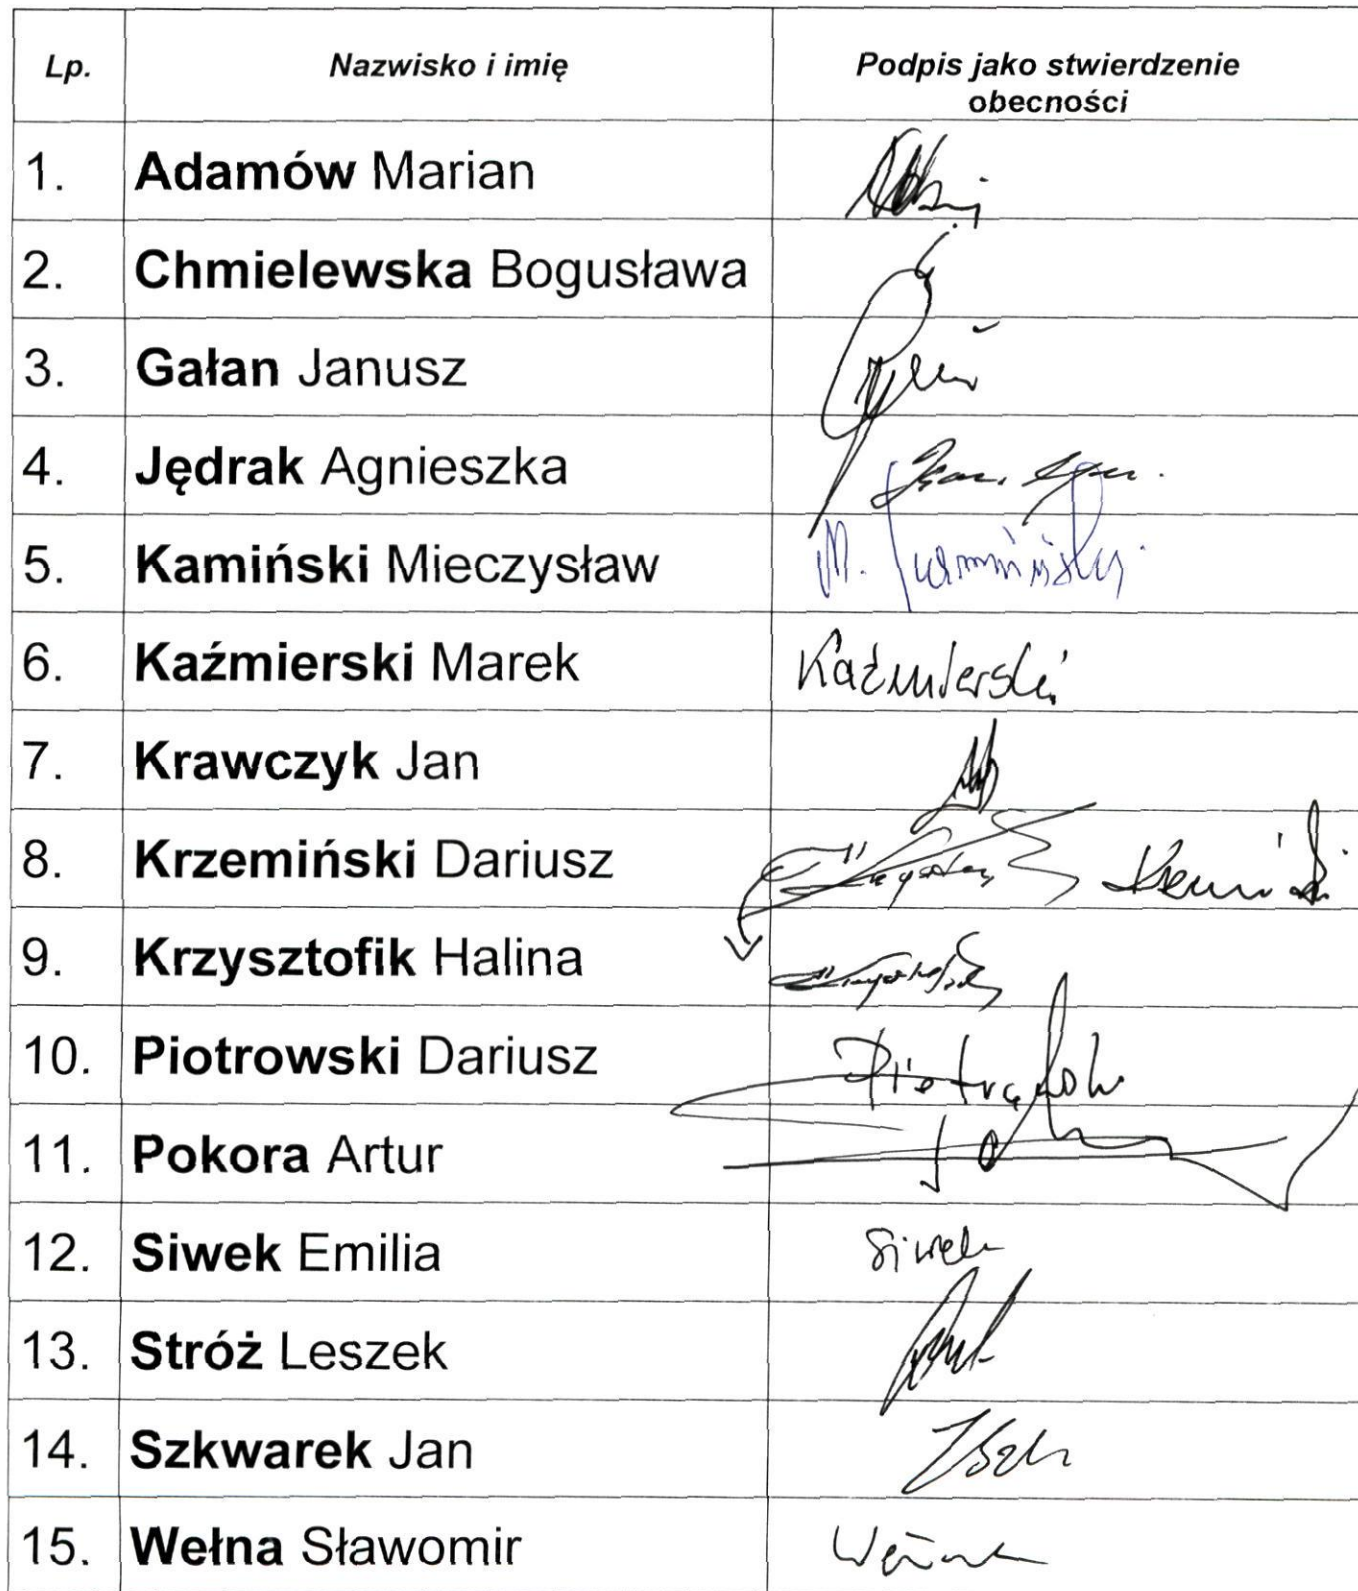 Lp. Nazwisko i imię Podpis jako stwierdzenie
obecności
1. Adamów Marian
2. Chmielewska Bogusława
3. Gałan Janusz
4. Jędrak Agnieszka
5. Kamiński Mieczysław M. Kamiński
6. Kaźmierski Marek Kaźmierski
7. Krawczyk Jan
8. Krzemiński Dariusz
9. Krzysztofik Halina
10. Piotrowski Dariusz
11. Pokora Artur
12. Siwek Emilia Siwek
13. Stróż Leszek
14. Szkwarek Jan
15. Wełna Sławomir